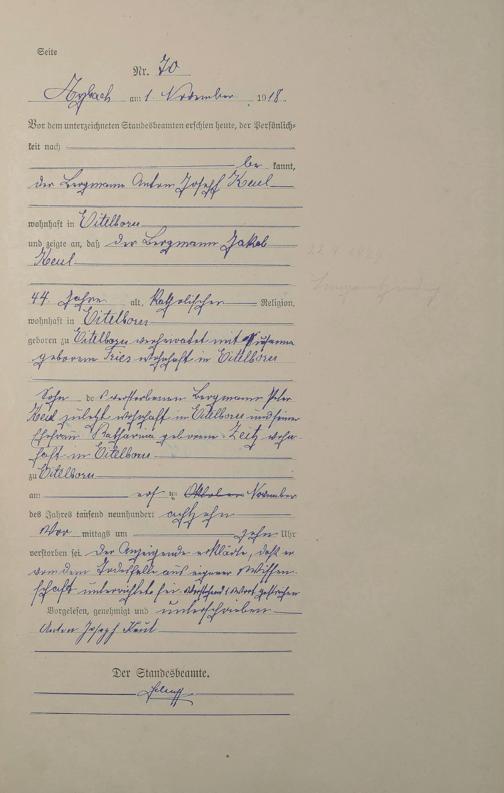 Seite
Nr. 70
Arzbach am 1 November 1918.
Vor dem unterzeichneten Standesbeamten erschien heute, der Persönlich-
keit nach
be kannt,
der Bergmann Anton Joseph Keul
wohnhaft in Eitelborn
und zeigte an, daß der Bergmann Jakob
Keul
44 Jahre alt, katholischer Religion,
wohnhaft in Eitelborn
geboren zu Eitelborn verheiratet mit Susanna
geborene Fries wohnhaft in Eitelborn
Sohn des verstorbenen Bergmanns Peter
Keul zuletzt wohnhaft in Eitelborn und seiner
Ehefrau Katharina geborene Zeitz wohn-
haft in Eitelborn
zu Eitelborn
am ersten Oktober November
des Jahres tausend neunhundert achtzehn
Vor mittags um zehn Uhr
verstorben sei. Der Anzeigende erklärte, daß er
von dem Todesfalle aus eigener Wissen-
schaft unterrichtet sei. Vorstehend 1 Wort gestrichen
Vorgelesen, genehmigt und unterschrieben
Anton Joseph Keul
Der Standesbeamte.